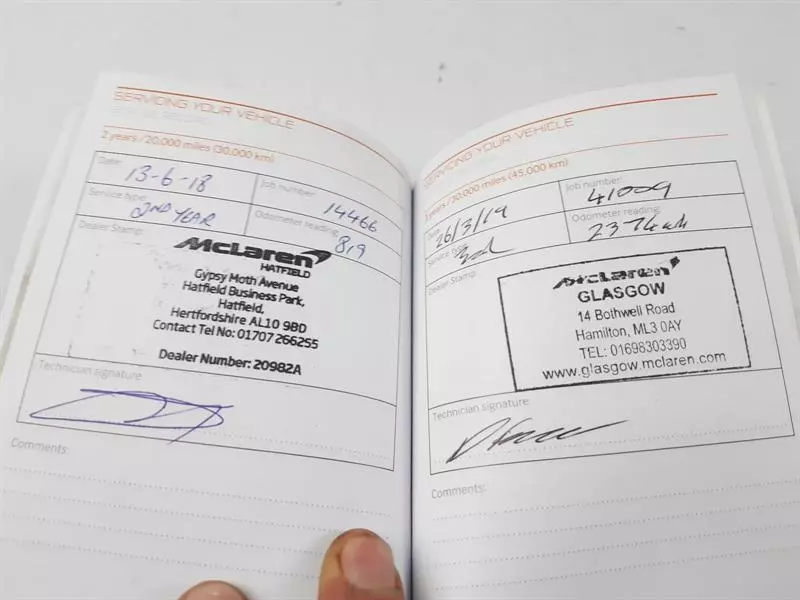 SERVICING YOUR VEHICLE
2 years / 20,000 miles (30,000 km)
Date: 13-6-18
Job number: 14466
Service type: 2ND YEAR
Odometer reading: 819
Dealer Stamp:
McLaren
HATFIELD
Gypsy Moth Avenue
Hatfield Business Park,
Hatfield,
Hertfordshire AL10 9BD
Contact Tel No: 01707 266255
Dealer Number: 20982A
Technician signature
Comments:
SERVICING YOUR VEHICLE
3 years / 30,000 miles (45,000 km)
Date: 26/3/19
Job number: 41009
Service type:
Odometer reading:
Dealer Stamp:
McLaren
GLASGOW
14 Bothwell Road
Hamilton, ML3 0AY
TEL: 01698303390
www.glasgow.mclaren.com
Technician signature:
Comments: